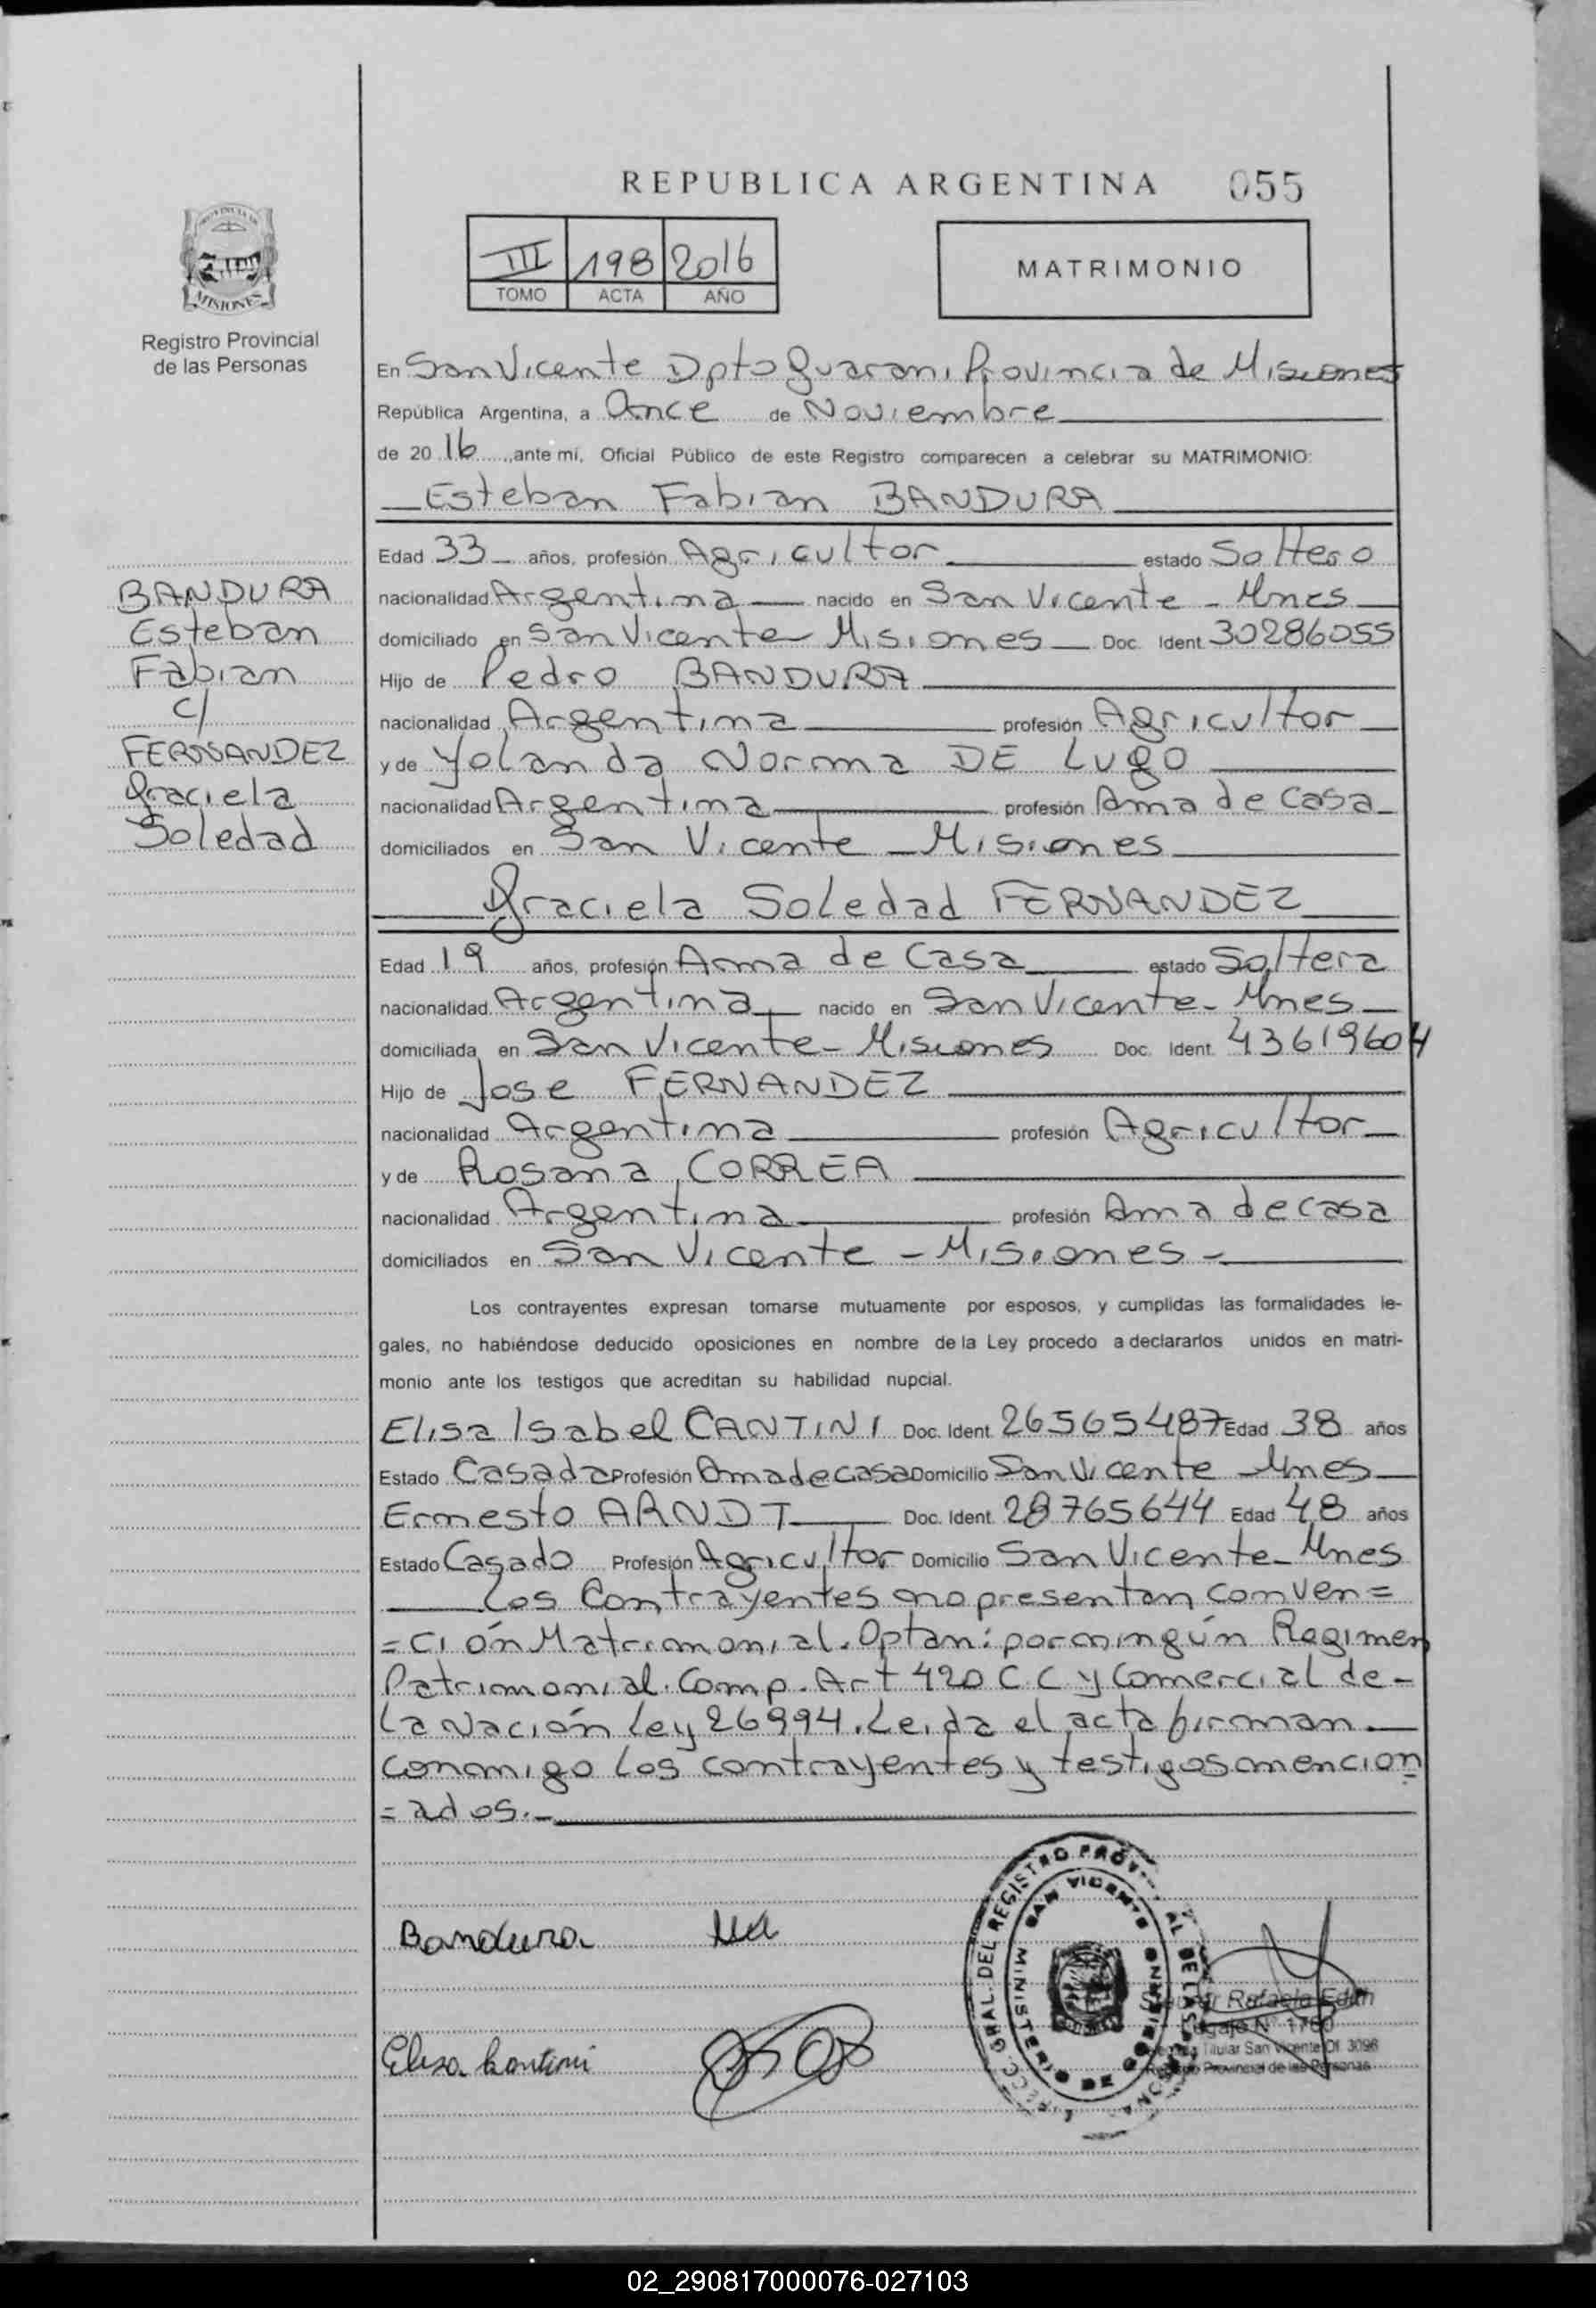 REPUBLICA ARGENTINA 055
III 198 2016
TOMO ACTA AÑO
MATRIMONIO
PROVINCIA DE
MISIONES
Registro Provincial
de las Personas
En San Vicente Dpto Guarani Provincia de Misiones
República Argentina, a Once de Noviembre
de 20 16 , ante mi, Oficial Público de este Registro comparecen a celebrar su MATRIMONIO:
Esteban Fabian BANDURA
Edad 33 años, profesión Agricultor estado Soltero
nacionalidad Argentina nacido en San Vicente - Mnes
domiciliado en San Vicente Misiones Doc. Ident. 30286055
Hijo de Pedro BANDURA
nacionalidad Argentina profesión Agricultor
y de Yolanda Norma DE Lugo
nacionalidad Argentina profesión Ama de Casa
domiciliados en San Vicente - Misiones
BANDURA
Esteban
Fabian
c/
FERNANDEZ
Graciela
Soledad
Graciela Soledad FERNANDEZ
Edad 19 años, profesión Ama de Casa estado Soltera
nacionalidad Argentina nacido en San Vicente - Mnes
domiciliada en San Vicente - Misiones Doc. Ident. 43619604
Hijo de Jose FERNANDEZ
nacionalidad Argentina profesión Agricultor
y de Rosana CORREA
nacionalidad Argentina profesión Ama de casa
domiciliados en San Vicente - Misiones -
Los contrayentes expresan tomarse mutuamente por esposos, y cumplidas las formalidades le-
gales, no habiéndose deducido oposiciones en nombre de la Ley procedo a declararlos unidos en matri-
monio ante los testigos que acreditan su habilidad nupcial.
Elisa Isabel CANTINI Doc. Ident. 26565487 Edad 38 años
Estado Casada Profesión Ama de casa Domicilio San Vicente Mnes
Ernesto ARNDT Doc. Ident. 28765644 Edad 48 años
Estado Casado Profesión Agricultor Domicilio San Vicente - Mnes
Los Contrayentes no presentan conven=
=ción Matrimonial. Optan: por ningún Regimen
Patrimonial. Comp. Art 420 C.C y Comercial de-
la Nación ley 26994. Leida el acta firman.
conmigo los contrayentes y testigos mencion
=ados.-
Bandura
Elisa Cantini
GRAL. DEL REGISTRO
SAN VICENTE
MINISTERIO DE GOBIERNO
Rafaela Edith
Legajo Nº 1760
Titular San Vicente Of. 3096
Registro Provincial de las Personas
02_290817000076-027103